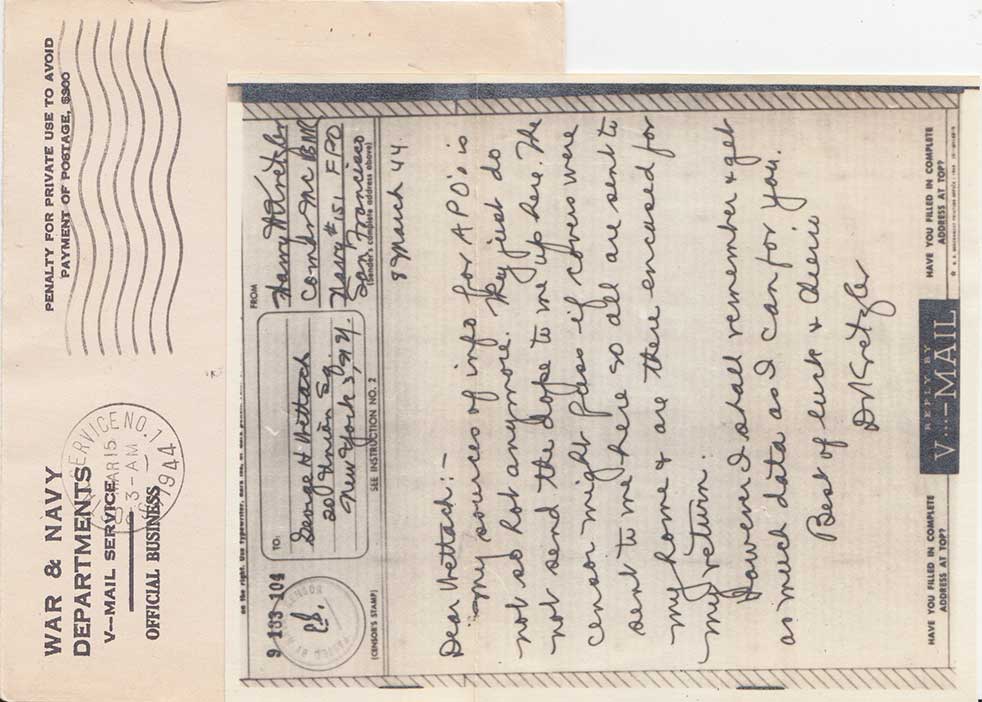 WAR & NAVY
DEPARTMENTS
V--MAIL SERVICE
OFFICIAL BUSINESS
SERVICE NO. 1
MAR 15
3-AM
1944
PENALTY FOR PRIVATE USE TO AVOID
PAYMENT OF POSTAGE, $300
9 183 104
(CENSOR'S STAMP)
TO:
George H Wettach
201 Union Sq.
New York 3, N.Y.
SEE INSTRUCTION NO. 2
FROM
Harry Kretzler
Comdr MC
Navy #151 FPO
San Francisco
(Sender's complete address above)
8 March 44.
Dear Wettach:-
my sources of info for APO's is
not so hot anymore. They just do
not send the dope to me up here. The
censor might pass it if covers were
sent to me here so all are sent to
my home & are there encased for
my return.
However I shall remember & get
as much data as I can for you.
Best of luck &
Kretzler
HAVE YOU FILLED IN COMPLETE
ADDRESS AT TOP?
REPLY BY
V···—MAIL
HAVE YOU FILLED IN COMPLETE
ADDRESS AT TOP?